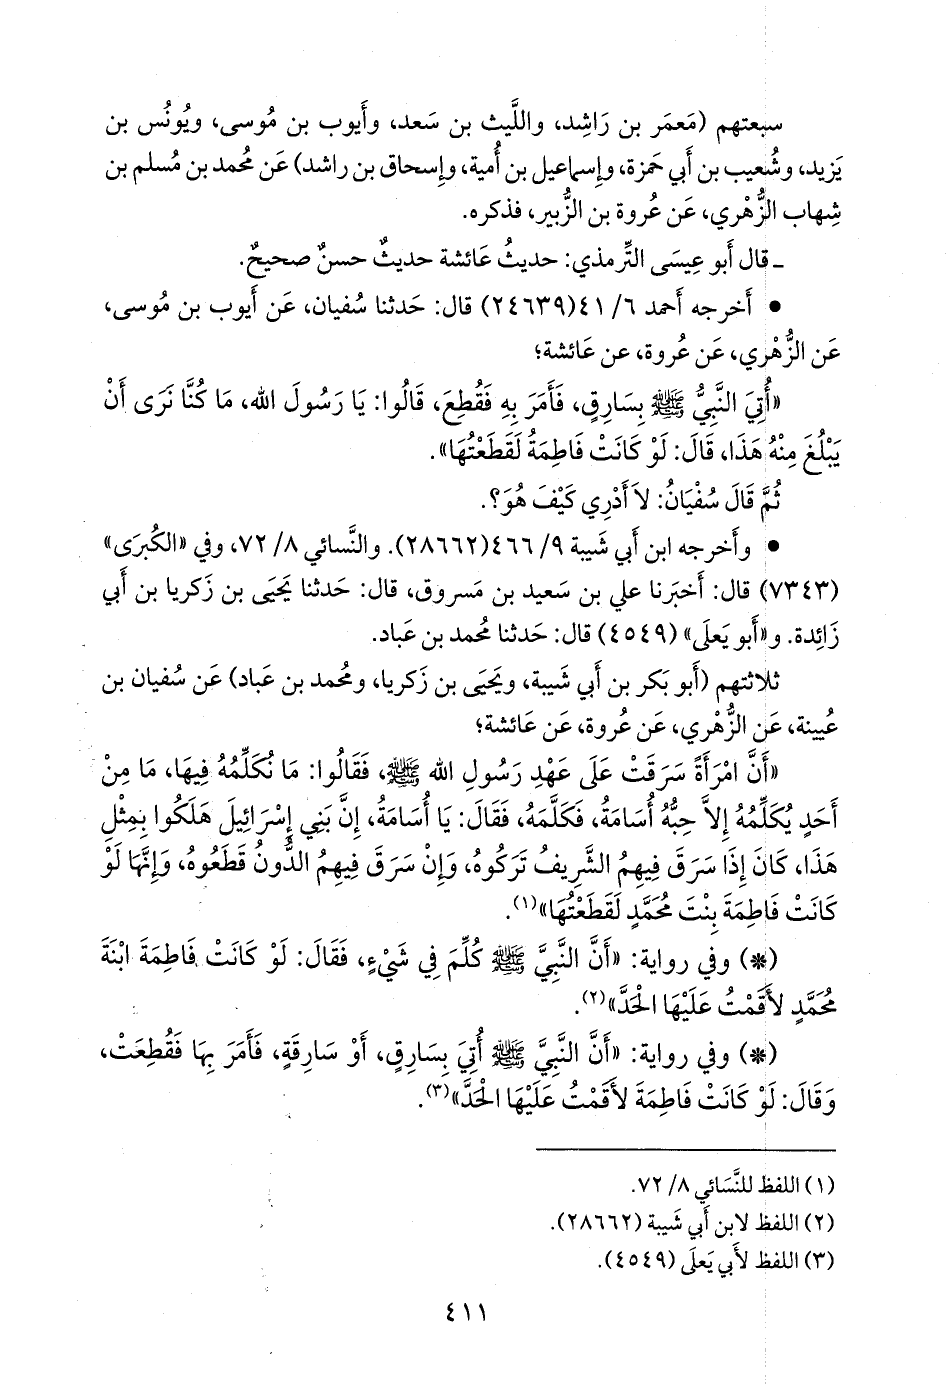 سبعتهم (مَعمَر بن رَاشِد، واللَّيث بن سَعد، وأَيوب بن مُوسى، ويُونُس بن
يَزيد، وشُعيب بن أَبي حَمزة، وإِسماعيل بن أُمية، وإِسحاق بن راشد) عَن محُمد بن مُسلم بن
شِهاب الزُّهْري، عَن عُروة بن الزُّبير، فذكره.
ـ قال أَبو عِيسَى التِّرمذي: حديثُ عَائشة حديثٌ حسنٌ صحيحٌ.
• أَخرجه أَحمد ٦/ ٤١(٢٤٦٣٩) قال: حَدثنا سُفيان، عَن أَيوب بن مُوسى،
عَن الزُّهْري، عَن عُروة، عن عَائشة؛
«أُتِيَ النَّبِيُّ ﷺ بِسَارِقٍ، فَأَمَرَ بِهِ فَقُطِعَ، قَالُوا: يَا رَسُولَ الله، مَا كُنَّا نَرَى أَنْ
يَبْلُغَ مِنْهُ هَذَا، قَالَ: لَوْ كَانَتْ فَاطِمَةُ لَقَطَعْتُهَا».
ثُمَّ قَالَ سُفْيَانُ: لاَ أَدْرِي كَيْفَ هُوَ؟.
• وأَخرجه ابن أَبي شَيبة ٩/ ٤٦٦(٢٨٦٦٢). والنَّسائي ٨/ ٧٢، وفي «الكُبرَى»
(٧٣٤٣) قال: أَخبَرنا علي بن سَعيد بن مَسروق، قال: حَدثنا يَحيَى بن زَكريا بن أَبي
زَائِدة. و«أَبو يَعلَى» (٤٥٤٩) قال: حَدثنا مُحمد بن عَباد.
ثلاثتهم (أَبو بَكر بن أَبي شَيبة، ويَحيَى بن زَكريا، ومُحمد بن عَباد) عَن سُفيان بن
عُيينة، عَن الزُّهْري، عَن عُروة، عَن عَائشة؛
«أَنَّ امْرَأَةً سَرَقَتْ عَلَى عَهْدِ رَسُولِ الله ﷺ، فَقَالُوا: مَا نُكَلِّمُهُ فِيهَا، مَا مِنْ
أَحَدٍ يُكَلِّمُهُ إِلاَّ حِبُّهُ أُسَامَةُ، فَكَلَّمَهُ، فَقَالَ: يَا أُسَامَةُ، إِنَّ بَنِي إِسْرَائِيلَ هَلَكُوا بِمِثْلِ
هَذَا، كَانَ إِذَا سَرَقَ فِيهِمُ الشَّرِيفُ تَرَكُوهُ، وَإِنْ سَرَقَ فِيهِمُ الدُّونُ قَطَعُوهُ، وَإِنَّهَا لَوْ
كَانَتْ فَاطِمَةَ بِنْتَ مُحَمَّدٍ لَقَطَعْتُهَا»(١).
(*) وفي رواية: «أَنَّ النَّبِيَّ ﷺ كُلِّمَ فِي شَيْءٍ، فَقَالَ: لَوْ كَانَتْ فَاطِمَةَ ابْنَةَ
مُحَمَّدٍ لأَقَمْتُ عَلَيْهَا الْحَدَّ»(٢).
(*) وفي رواية: «أَنَّ النَّبِيَّ ﷺ أُتِيَ بِسَارِقٍ، أَوْ سَارِقَةٍ، فَأَمَرَ بِهَا فَقُطِعَتْ،
وَقَالَ: لَوْ كَانَتْ فَاطِمَةَ لأَقَمْتُ عَلَيْهَا الْحَدَّ»(٣).
(١) اللفظ للنَّسَائي ٨/ ٧٢.
(٢) اللفظ لابن أَبي شَيبة (٢٨٦٦٢).
(٣) اللفظ لأَبي يَعلَى (٤٥٤٩).
٤١١